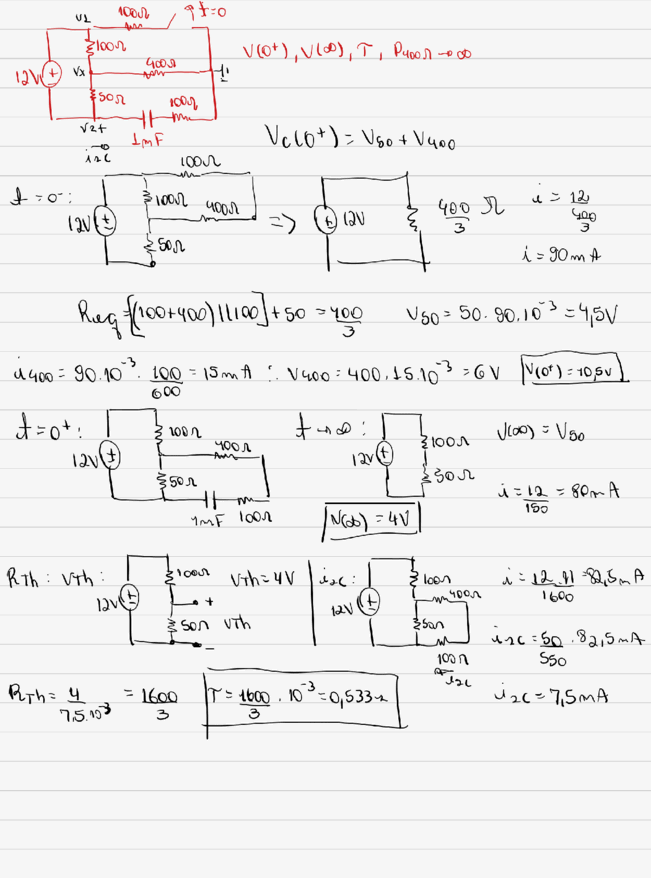 V1 100Ω t=0
100Ω
V(0⁺), V(∞), τ, P400Ω t→∞
12V Vx 400Ω
50Ω 100Ω
V2+ 1mF
i2c
Vc(0⁺) = V50 + V400
t=0⁻: 100Ω
12V 100Ω 400Ω 50Ω => 12V 400/3 Ω
i = 12/(400/3)
i = 90mA
Req = [(100+400)//100] + 50 = 400/3 V50 = 50.90.10⁻³ = 4,5V
i400 = 90.10⁻³ . 100/600 = 15mA ∴ V400 = 400.15.10⁻³ = 6V V(0⁺) = 10,5V
t=0⁺: 12V 100Ω 400Ω 50Ω 1mF 100Ω
t→∞: 12V 100Ω 50Ω
V(∞) = V50
i = 12/150 = 80mA
V(∞) = 4V
RTh: VTh: 12V 100Ω 50Ω + VTh - VTh = 4V
i2c: 12V 100Ω 400Ω 50Ω 100Ω i2c
i = 12.11/1600 = 82,5mA
i2c = 50/550 . 82,5mA
i2c = 7,5mA
RTh = 4/7,5.10⁻³ = 1600/3 τ = 1600/3 . 10⁻³ = 0,533s